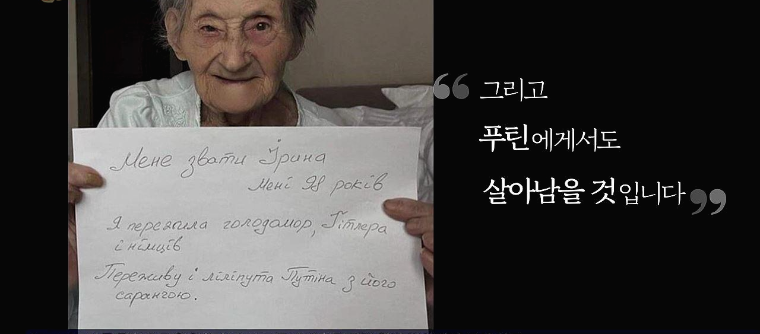 Мене звати Ірина
Мені 98 років
Я пережила голодомор, Гітлера
і німців
Переживу і ліліпута Путіна з його
сарангою.
“ 그리고
푸틴에게서도
살아남을 것입니다 ”